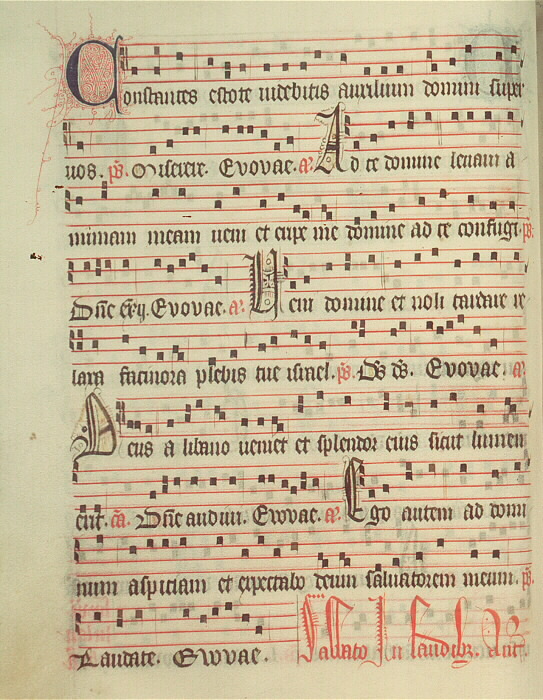 Constantes estote videbitis auxilium domini super
vos. ps. Miserere. Evovae. a. Ad te domine levavi a
nimam meam veni et eripe me domine ad te confugi. ps.
Dne exij. Evovae. a. Veni domine et noli tardare re
laxa facinora plebis tue israel. ps. Ds ds. Evovae. a.
Deus a libano veniet et splendor eius sicut lumen
erit. ca. Dne audivi. Evovae. a. Ego autem ad domi
num aspiciam et expectabo deum salvatorem meum. ps.
Laudate. Evovae. Sabbato In laudibz. Ant